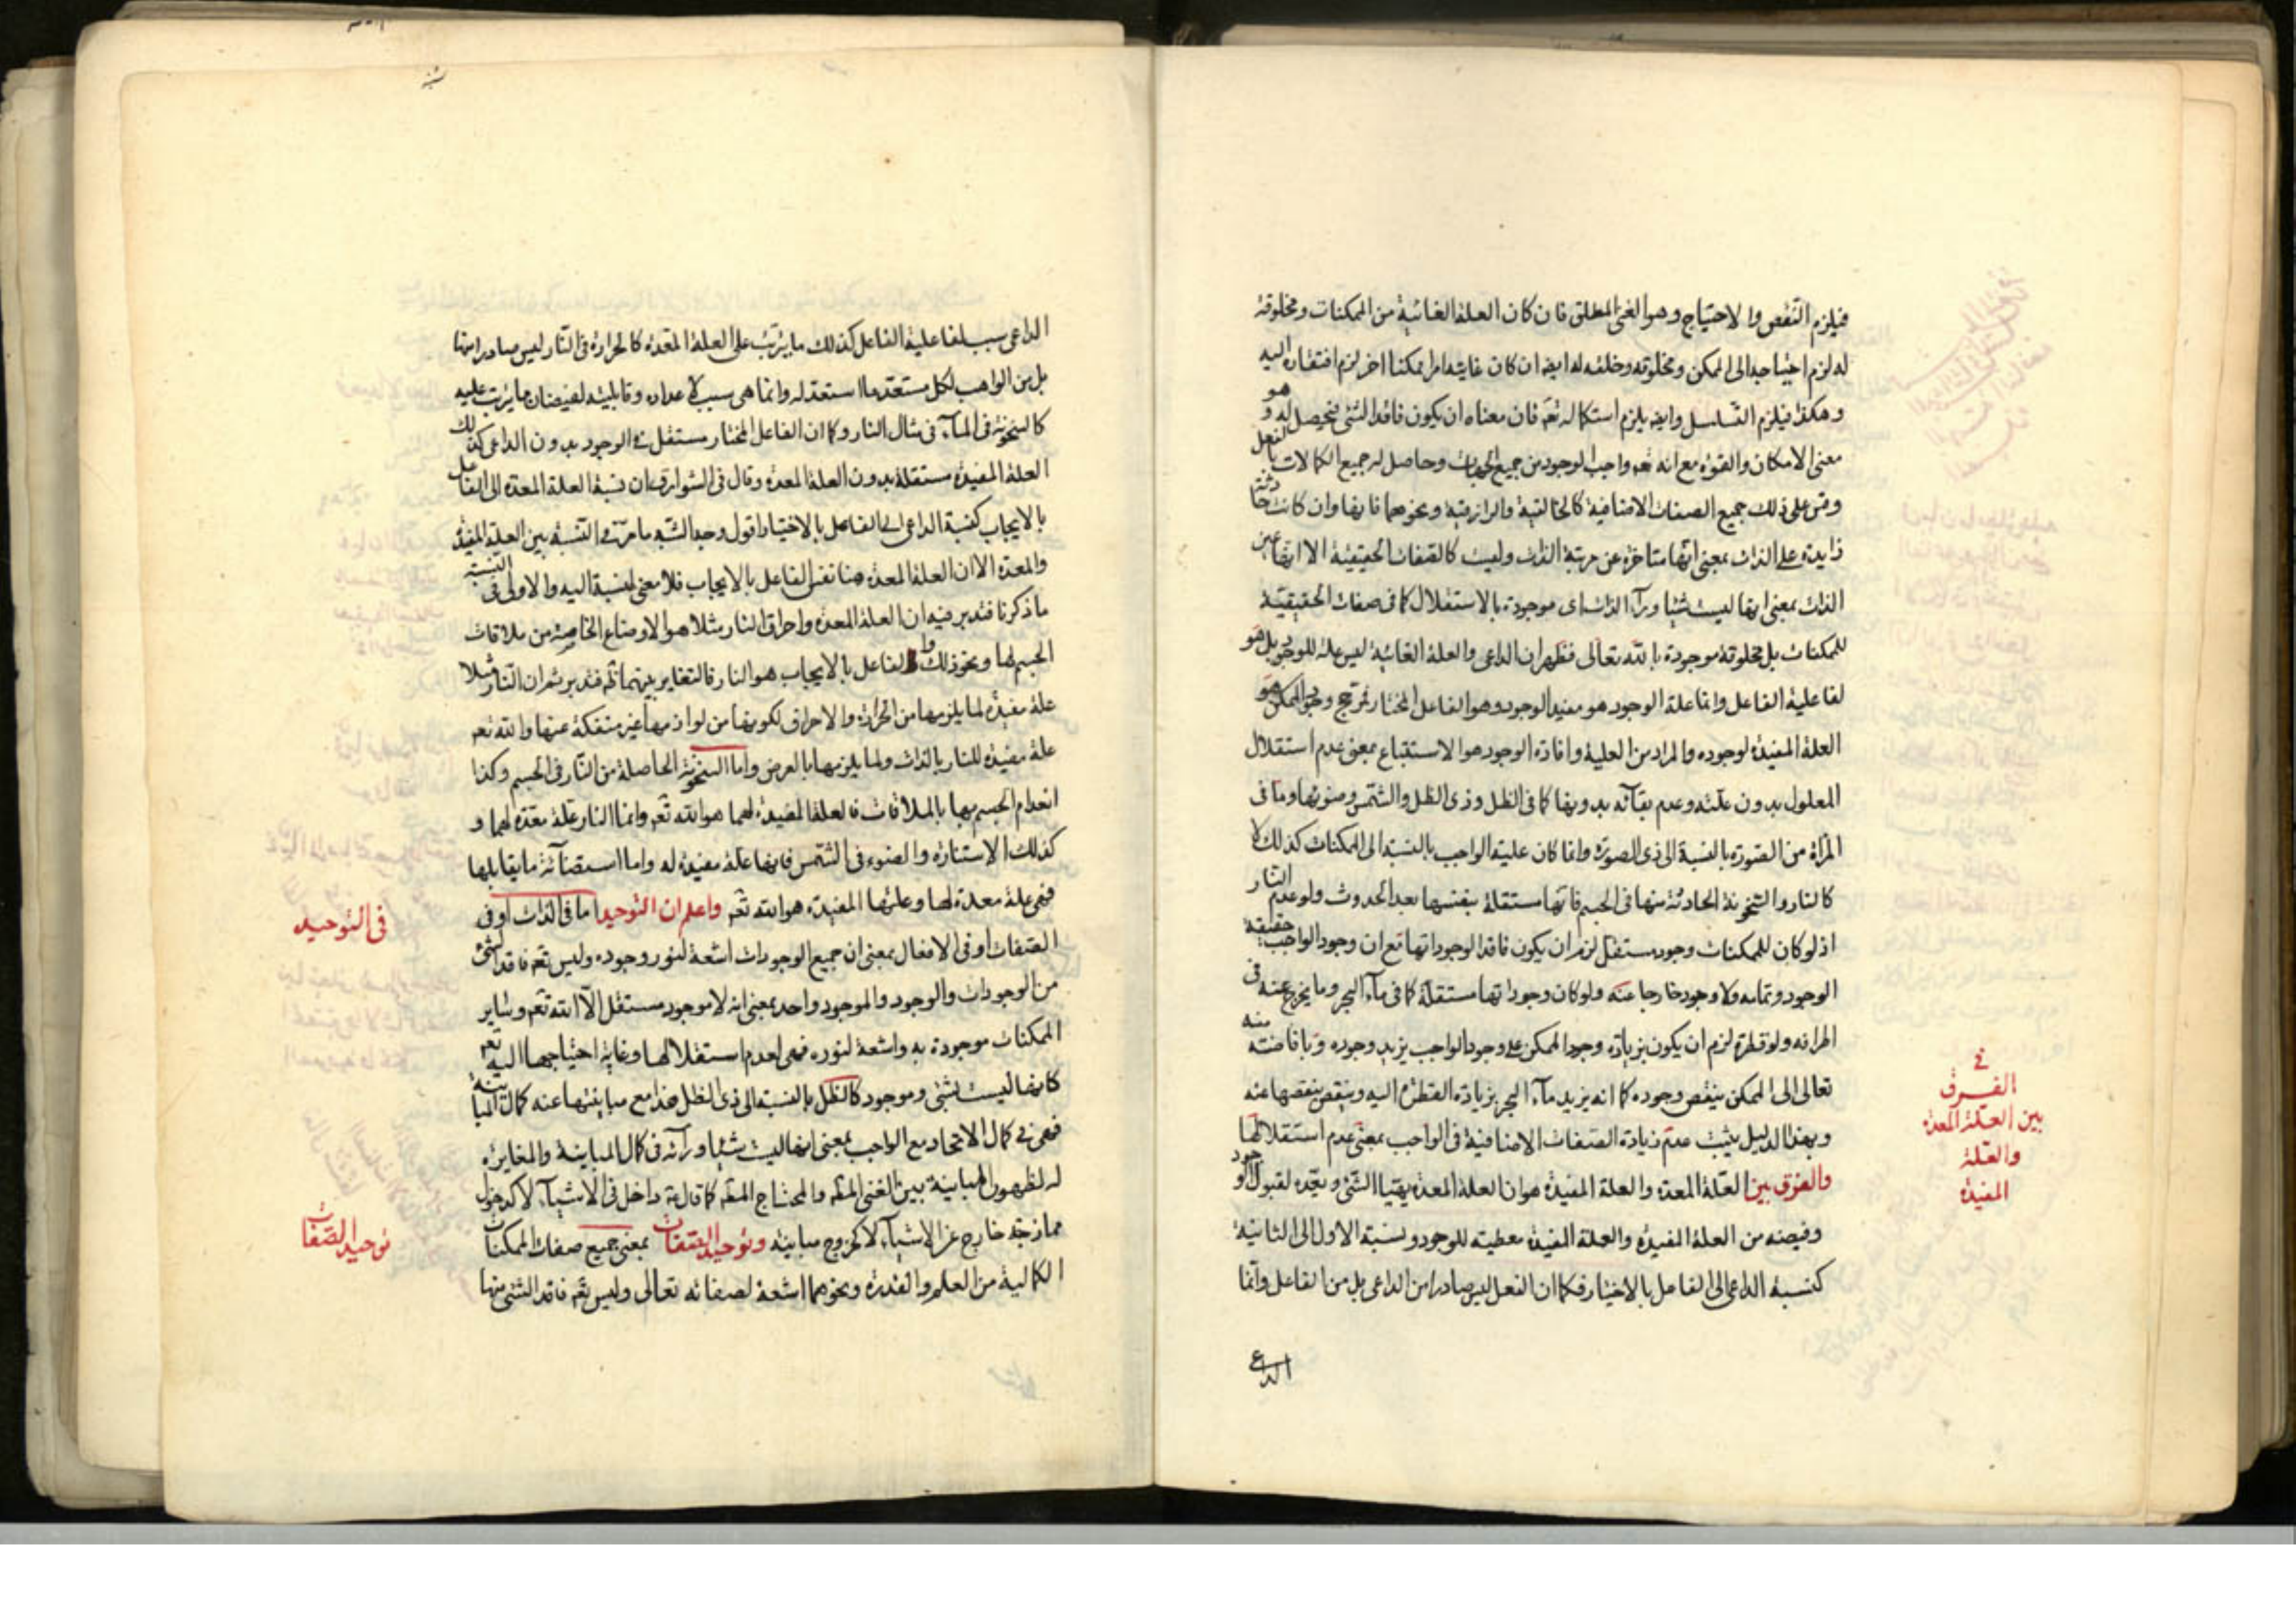 فيلزم النقص والاحتياج وهو الغنى المطلق فان كان العلة الغائية من الممكنات ومخلوقة
له لزم احتياجه الى الممكن ومخلوقه وخلقه له ايضا ان كان غايته امرا ممكنا اخر لزم افتقاره اليه
وهكذا فيلزم التسلسل وايضا يلزم استكماله تعه فان معناه ان يكون فاقدا لشئ فيحصل له وهو
معنى الامكان والقوة مع انه تعه واجب الوجود من جميع الجهات وحاصل له جميع الكمالات بالفعل
وقس على ذلك جميع الصفات الاضافية كالخالقية والرازقية ونحوهما فانها وان كانت حادثة
زايدة على الذات بمعنى انها متاخرة عن مرتبة الذات وليست كالصفات الحقيقية الا انها عين
الذات بمعنى انها ليست شيئا ورآء الذات اى موجودة بالاستقلال كما فى صفات الحقيقية
للممكنات بل مخلوقة موجودة بالله تعالى فظهر ان الداعى والعلة الغائية ليس علة للوجود بل هو
لفاعلية الفاعل وانما علة الوجود هو مفيد الوجود وهو الفاعل المختار فمرجح وجود الممكن هو
العلة المفيدة لوجوده والمراد من العلية وافادة الوجود هو الاستتباع بمعنى عدم استقلال
المعلول بدون علته وعدم بقآئه بدونها كما فى الظل وذى الظل والشمس وضوئها وما فى
المرآة من الصورة بالنسبة الى ذى الصورة وانما كان علية الواجب بالنسبة الى الممكنات كذلك لا
كالنار والسخونة الحادثة منها فى الجسم فانها مستقلة بنفسها بعد الحدوث ولو عدم النار
اذ لو كان للممكنات وجود مستقل لزم ان يكون فاقدا لوجوداتها مع ان وجود الواجب حقيقة
الوجود وتمامه ولا وجود خارجا عنه ولو كان وجوداتها مستقلة كما فى مآء البحر وما يخرج عنه فى
اطرافه ولو قطرة لزم ان يكون بزيادة وجود الممكن على وجود الواجب يزيد وجوده وبافاضته منه
تعالى الى الممكن ينقص وجوده كما انه يزيد مآء البحر بزيادة القطرة اليه وينقص بنقصها عنه
وبهذا الدليل يثبت عدم زيادة الصفات الاضافية فى الواجب بمعنى عدم استقلالها
والفرق بين العلة المعدة والعلة المفيدة هو ان العلة المعدة يهيئا الشئ ويعده لقبول الوجود
وفيضه من العلة المفيدة والعلة المفيدة معطية للوجود ونسبة الاول الى الثانية
كنسبة الداعى الى الفاعل بالاختيار فكما ان الفعل ليس صادرا من الداعى بل من الفاعل وانما
الداعى
فى
الفرق
بين العلة المعدة
والعلة
المفيدة
الداعى سبب لفاعلية الفاعل كذلك ما يترتب على العلة المعدة كالحرارة فى النار ليس صادرا منها
بل من الواهب لكل مستعد ما استعد له وانما هى سبب لاعداده وقابليته لفيضان ما يترتب عليه
كالسخونة فى المآء فى مثال النار وكما ان الفاعل المختار مستقل فى الوجود بدون الداعى كذلك
العلة المفيدة مستقلة بدون العلة المعدة وقال فى الشوارق ان نسبة العلة المعدة الى الفاعل
بالايجاب كنسبة الداعى الى الفاعل بالاختيار اقول وجه الشبه ما مر من النسبة بين العلة المفيدة
والمعدة الا ان العلة المعدة هنا نفس الفاعل بالايجاب فلا معنى لنسبة اليه والاولى فى النسبة
ما ذكرنا فتدبر فيه ان العلة المعدة واحراق النار مثلا هو الاوضاع الخاصة من ملاقات
الجسم لها ونحو ذلك والفاعل بالايجاب هو النار فالتغاير بينهما تم فتدبر ثم ان النار مثلا
علة مفيدة لما يلزمها من الحرارة والاحراق لكونها من لوازمها غير منفكة عنها والله تعه
علة مفيدة للنار بالذات ولما يلزمها بالعرض واما السخونة الحاصلة من النار فى الجسم وكذا
انعدام الجسم بها بالملاقات فالعلة المفيدة لهما هو الله تعه وانما النار علة معدة لهما و
كذلك الاستنارة والضوء فى الشمس فانها علة مفيدة له واما استضائة ما يقابلها
فهى علة معدة لها وعلتها المفيدة هو الله تعه واعلم ان التوحيد اما فى الذات او فى
الصفات او فى الافعال بمعنى ان جميع الوجودات اشعة لنور وجوده وليس تعه فاقدا لشئ
من الوجودات والوجود والموجود واحد بمعنى انه لا موجود مستقل الا الله تعه وساير
الممكنات موجودة به واشعة لنوره فهى لعدم استقلالها وغاية احتياجها اليه تعه
كانها ليست بشئ وموجود كالظل بالنسبة الى ذى الظل هذا مع مباينتها عنه كمال المباينة
فهى فى كمال الاتحاد مع الواجب بمعنى انها ليست شيئا ورآئه فى كمال المباينة والمغايرة
له لظهور المباينة بين الغنى المطلق والمحتاج المطلق كما قال ع داخل فى الاشيآء لا كدخول
ممازجة خارج عن الاشيآء لا كخروج مباينة وتوحيد الصفات بمعنى جميع صفات الممكنات
الكمالية من العلم والقدرة ونحوهما اشعة لصفاته تعالى وليس تعه فاقدا لشئ منها
فى التوحيد
توحيد الصفات